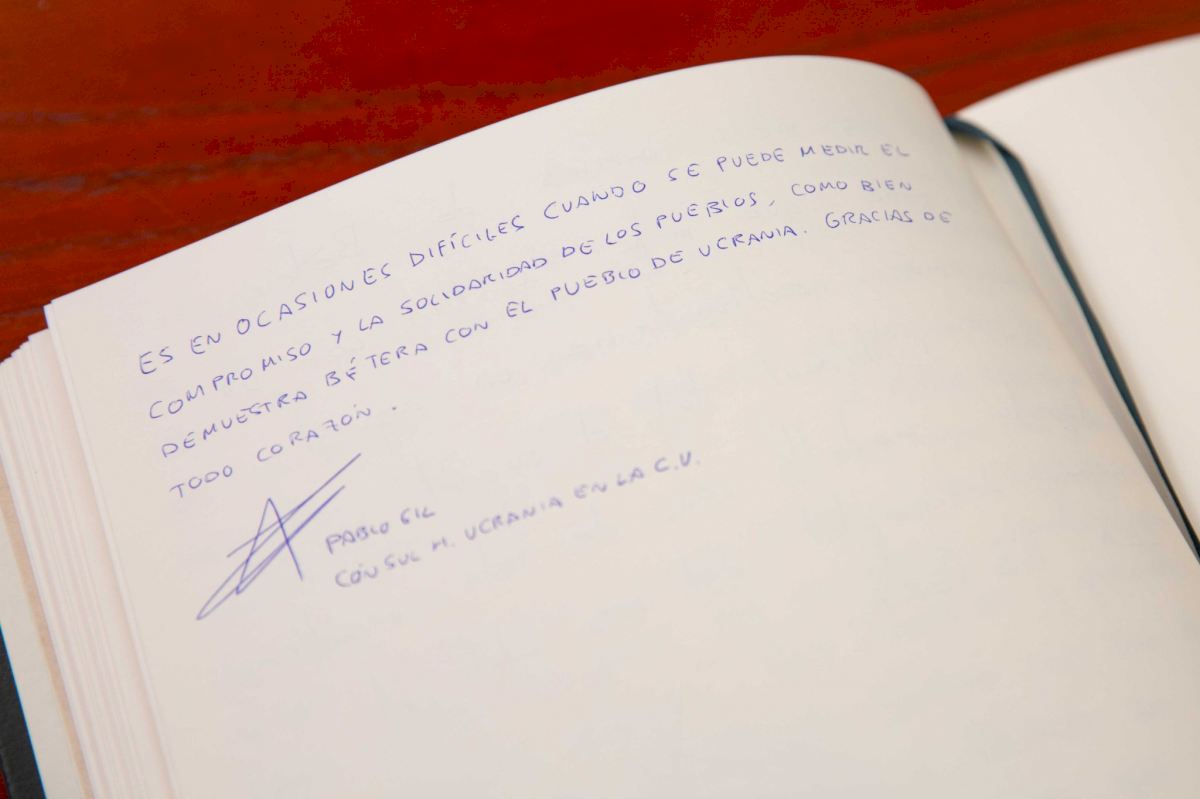 ES EN OCASIONES DIFÍCILES CUANDO SE PUEDE MEDIR EL
COMPROMISO Y LA SOLIDARIDAD DE LOS PUEBLOS, COMO BIEN
DEMUESTRA BÉTERA CON EL PUEBLO DE UCRANIA. GRACIAS DE
TODO CORAZÓN.
PABLO GIL
CÓNSUL H. UCRANIA EN LA C.V.